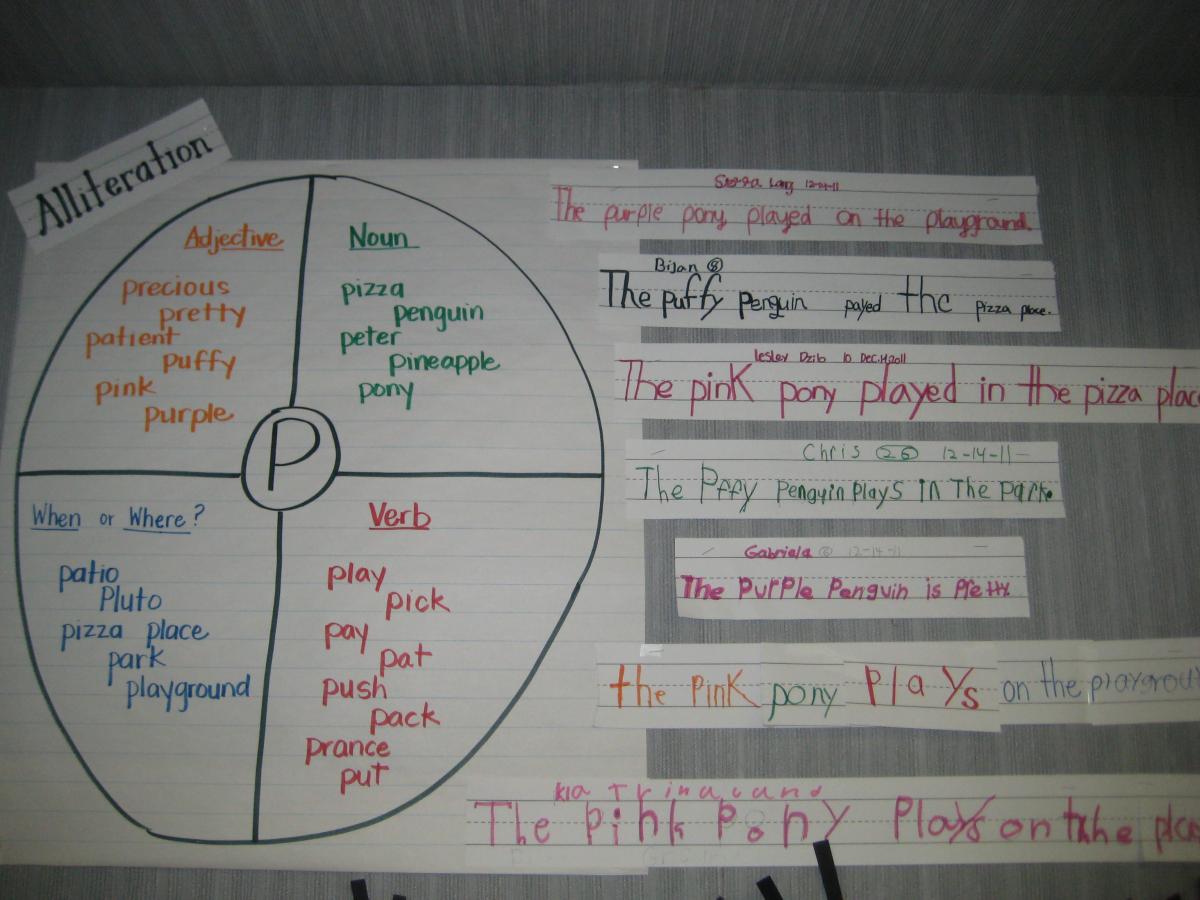 Alliteration
Adjective
precious
pretty
patient
puffy
pink
purple
Noun
pizza
penguin
peter
pineapple
pony
P
When or Where?
patio
Pluto
pizza place
park
playground
Verb
play
pick
pay
pat
push
pack
prance
put
The purple pony played on the playground.
Bijan 8
The puffy Penguin payed the pizza place.
Lesley Dzib 10 Dec.14,2011
The pink pony played in the pizza plac
Chris 26 12-14-11
The Pffy Penguin Plays in The Park.
Gabriela 12-14-11
The PurPle Penguin is Pretty
the Pink pony Plays on the playgrou
The Pink Pony Plays on the